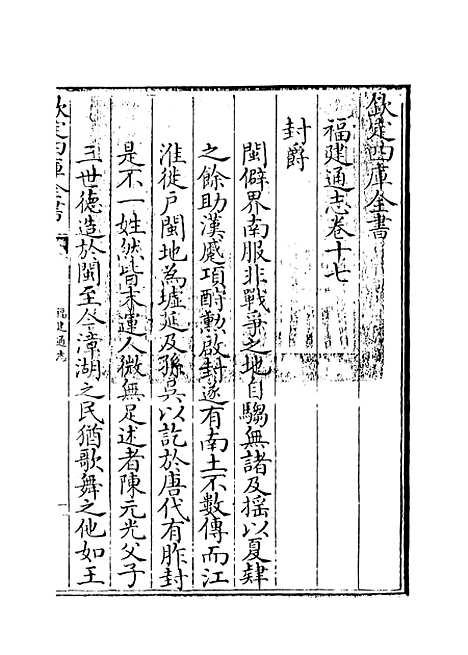 欽定四庫全書
福建通志卷十七
封爵
閩僻界南服非戰爭之地自騶無諸及搖以夏肄
之餘助漢蹙項酧勲啟封遂有南土不數傳而江
淮徙戶閩地為墟延及孫吳以訖於唐代有胙封
是不一姓然皆末運人微無足述者陳元光父子
三世徳造於閩至今漳湖之民猶歌舞之他如王
欽定四庫全書
福建通志
一